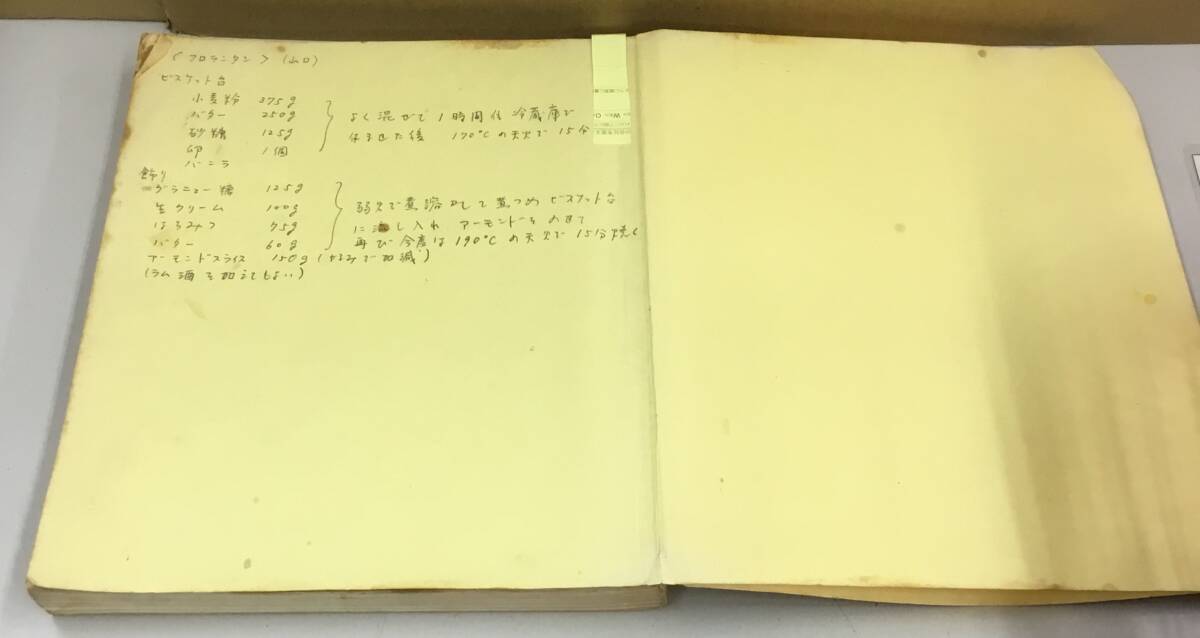 〈フロランタン〉(山口)
ビスケット台
小麦粉 375g
バター 250g
砂糖 125g
卵 1個
バニラ
よく混ぜて1時間位冷蔵庫で
休ませた後 170℃の天火で15分
飾り
グラニュー糖 125g
生クリーム 100g
はちみつ 75g
バター 60g
アーモンドスライス 150g (好みで加減)
(ラム酒を加えてもよい)
弱火で煮溶かして煮つめビスケット台
に流し入れ アーモンドをのせて
再び今度は190℃の天火で15分焼く